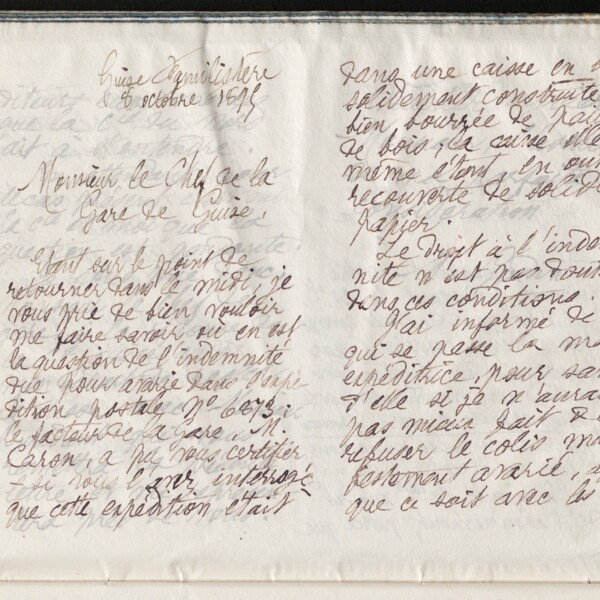 Guise Familistère
8 octobre 1895
Monsieur le Chef de la
Gare de Guise,
Etant sur le point de
retourner dans le midi, je
vous prie de bien vouloir
me faire savoir où en est
la question de l'indemnité
due pour avarie dans l'expé
dition postale N° 6873:
le facteur de la Gare, M.
Caron, a pu vous certifier
si vous l'avez interrogé
que cette expédition était
dans une caisse en
solidement construite
bien bourrée de
de bois; la caisse elle
même étant en out
recouverte de solide
papier.
Le droit à l'indem
nité n'est pas dout
dans ces conditions.
J'ai informé de
qui se passe la ma
expéditrice, pour sa
d'elle si je n'aura
pas mieux fait de
refuser le colis ma
festement avarié,
que ce soit avec les